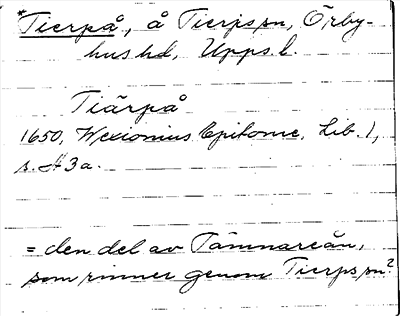 *Tierpå, å Tierps sn, Örby-
hus hd, Upps. l.
Tiärpå
1650, Wexionius Epitome. Lib. 1,
s. H3a.
= den del av Tämnareån,
som rinner genom Tierps sn?